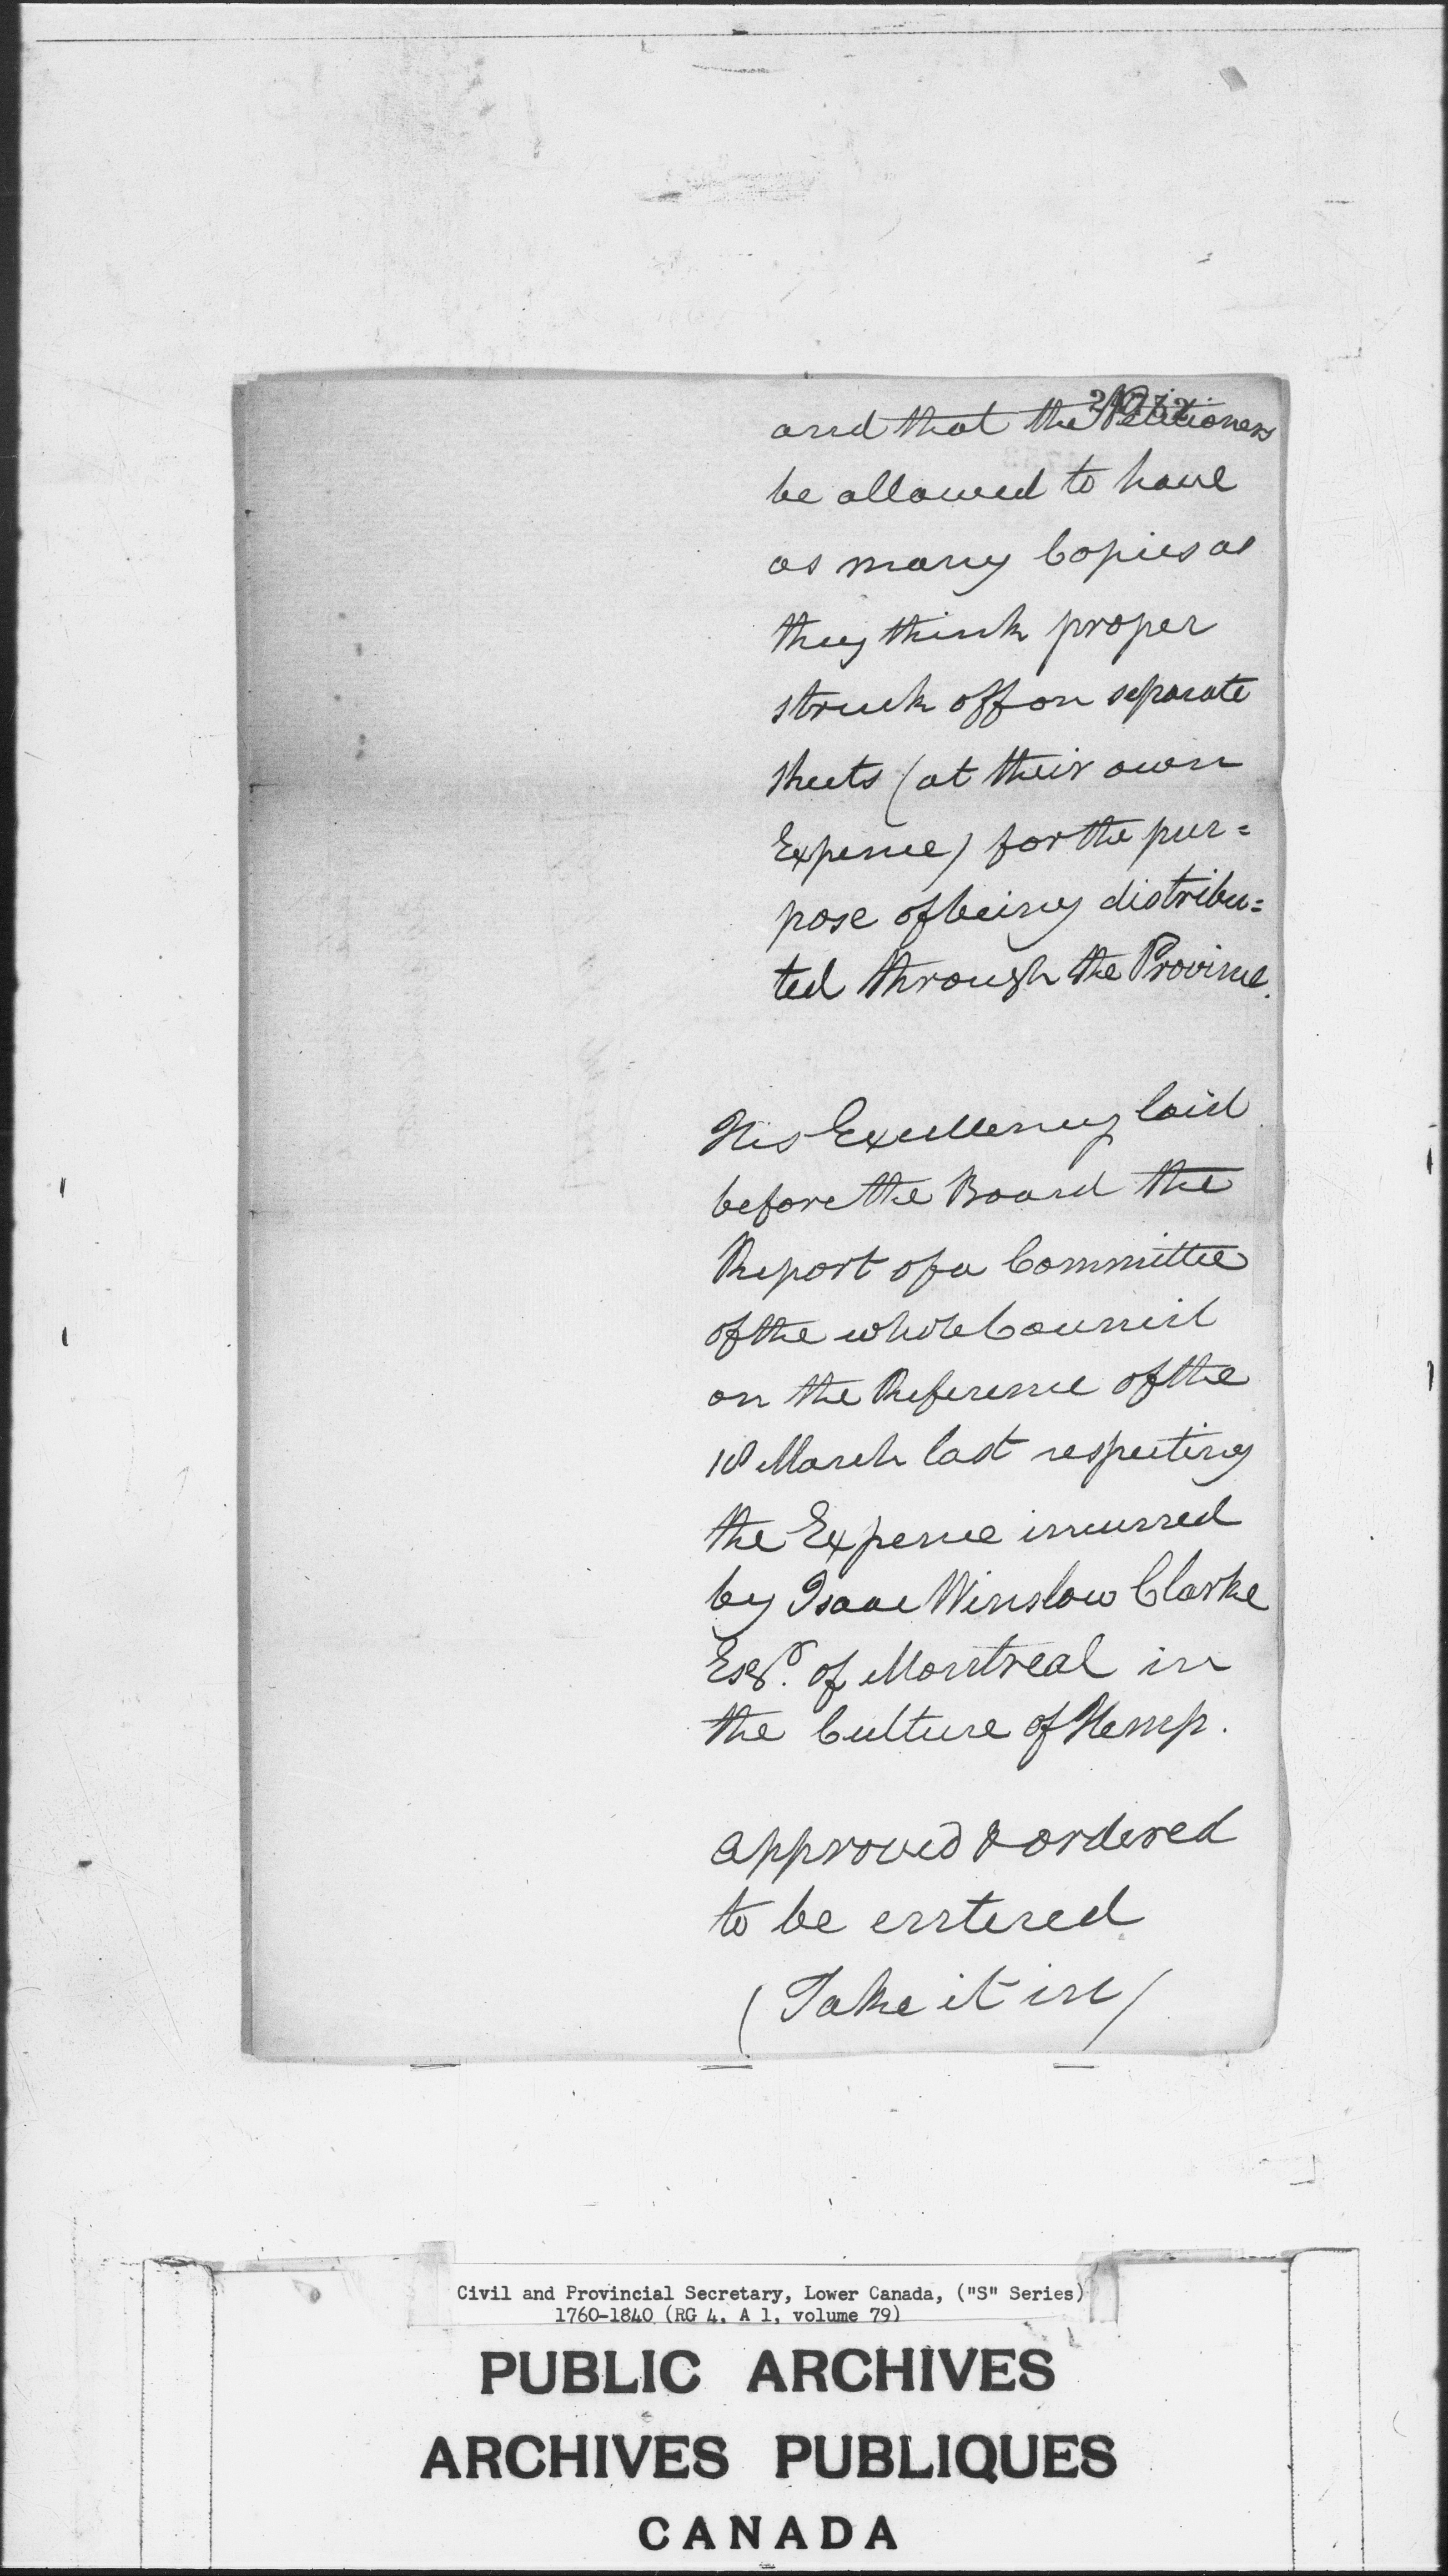 and that the Petitioners
be allowed to have
as many Copies as
they think proper
struck off on separate
sheets (at their own
Expence) for the pur=
pose of being distribu=
ted through the Province.
His Excellency laid
before the Board the
Report of a Committee
of the whole Council
on the Reference of the
18 March last respecting
the Expence incurred
by Isaac Winslow Clarke
Esqr. of Montreal in
the Culture of Hemp.
approved & ordered
to be entered
(Take it in)
Civil and Provincial Secretary, Lower Canada, ("S" Series)
1760-1840 (RG 4, A 1, volume 79)
PUBLIC ARCHIVES
ARCHIVES PUBLIQUES
CANADA